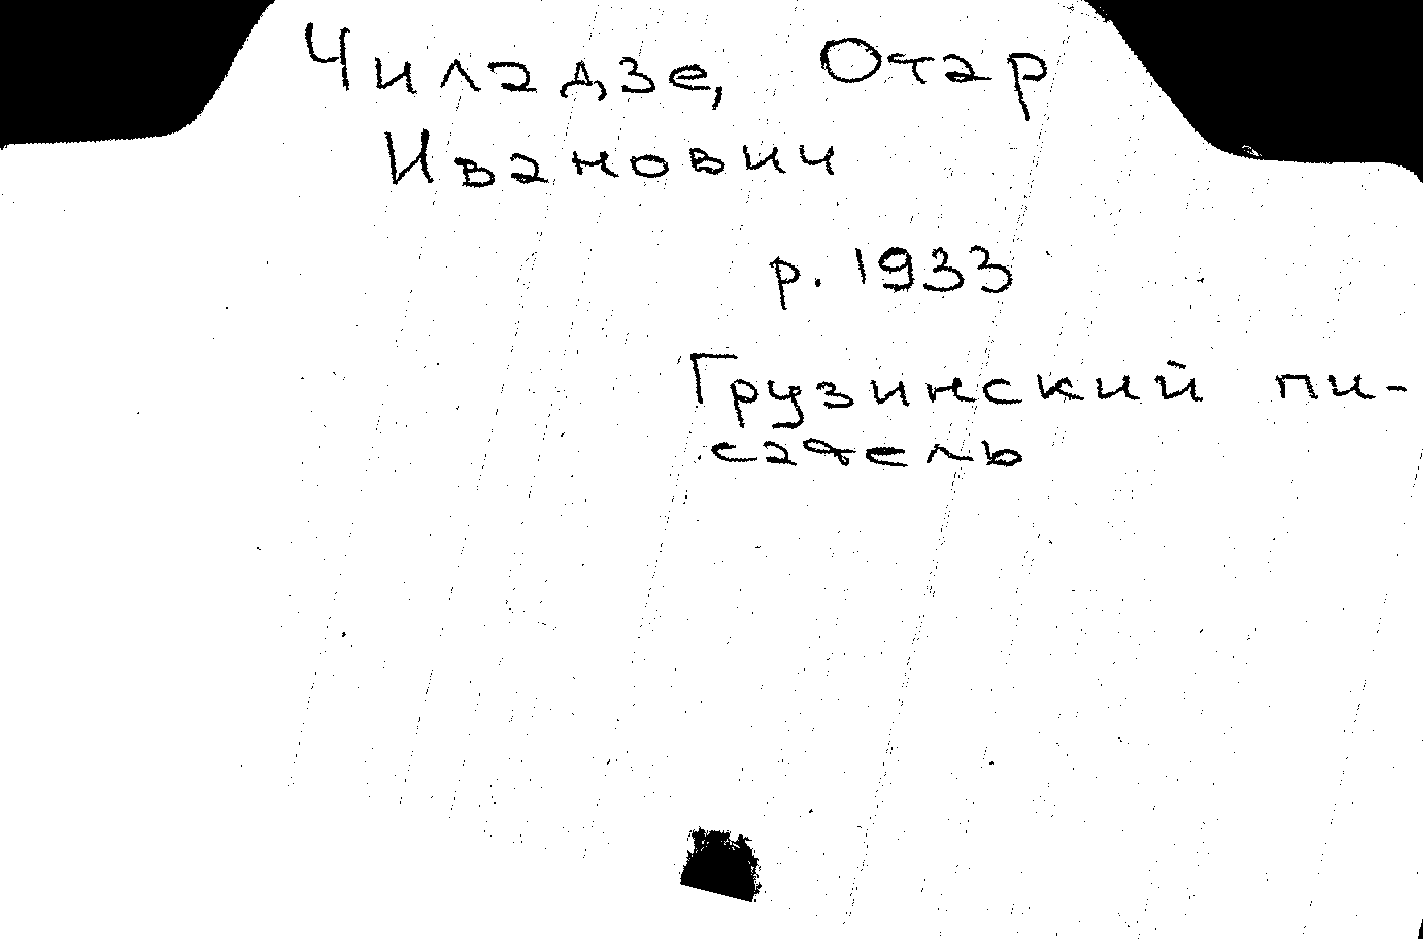 Чиладзе, Отар
Иванович
р. 1933
Грузинский пи-
сатель